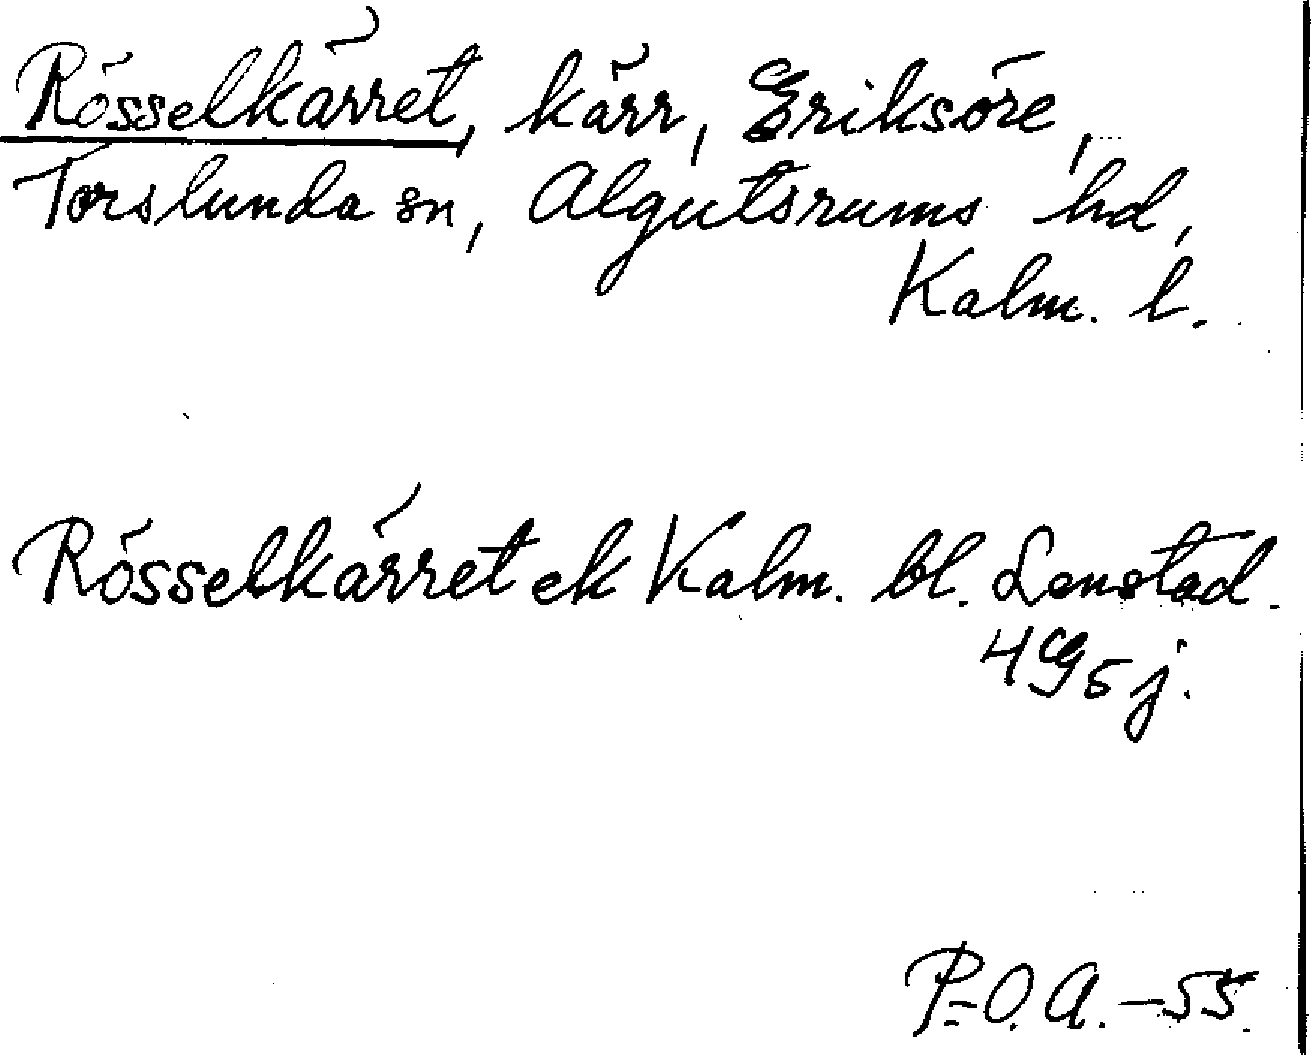 Rösselkärret, kärr, Eriksöre,
Torslunda sn, Algutsrums hd,
Kalm. l.
Rösselkärret ek Kalm. bl. Lenstad.
4G5j.
P=O.A.-55.